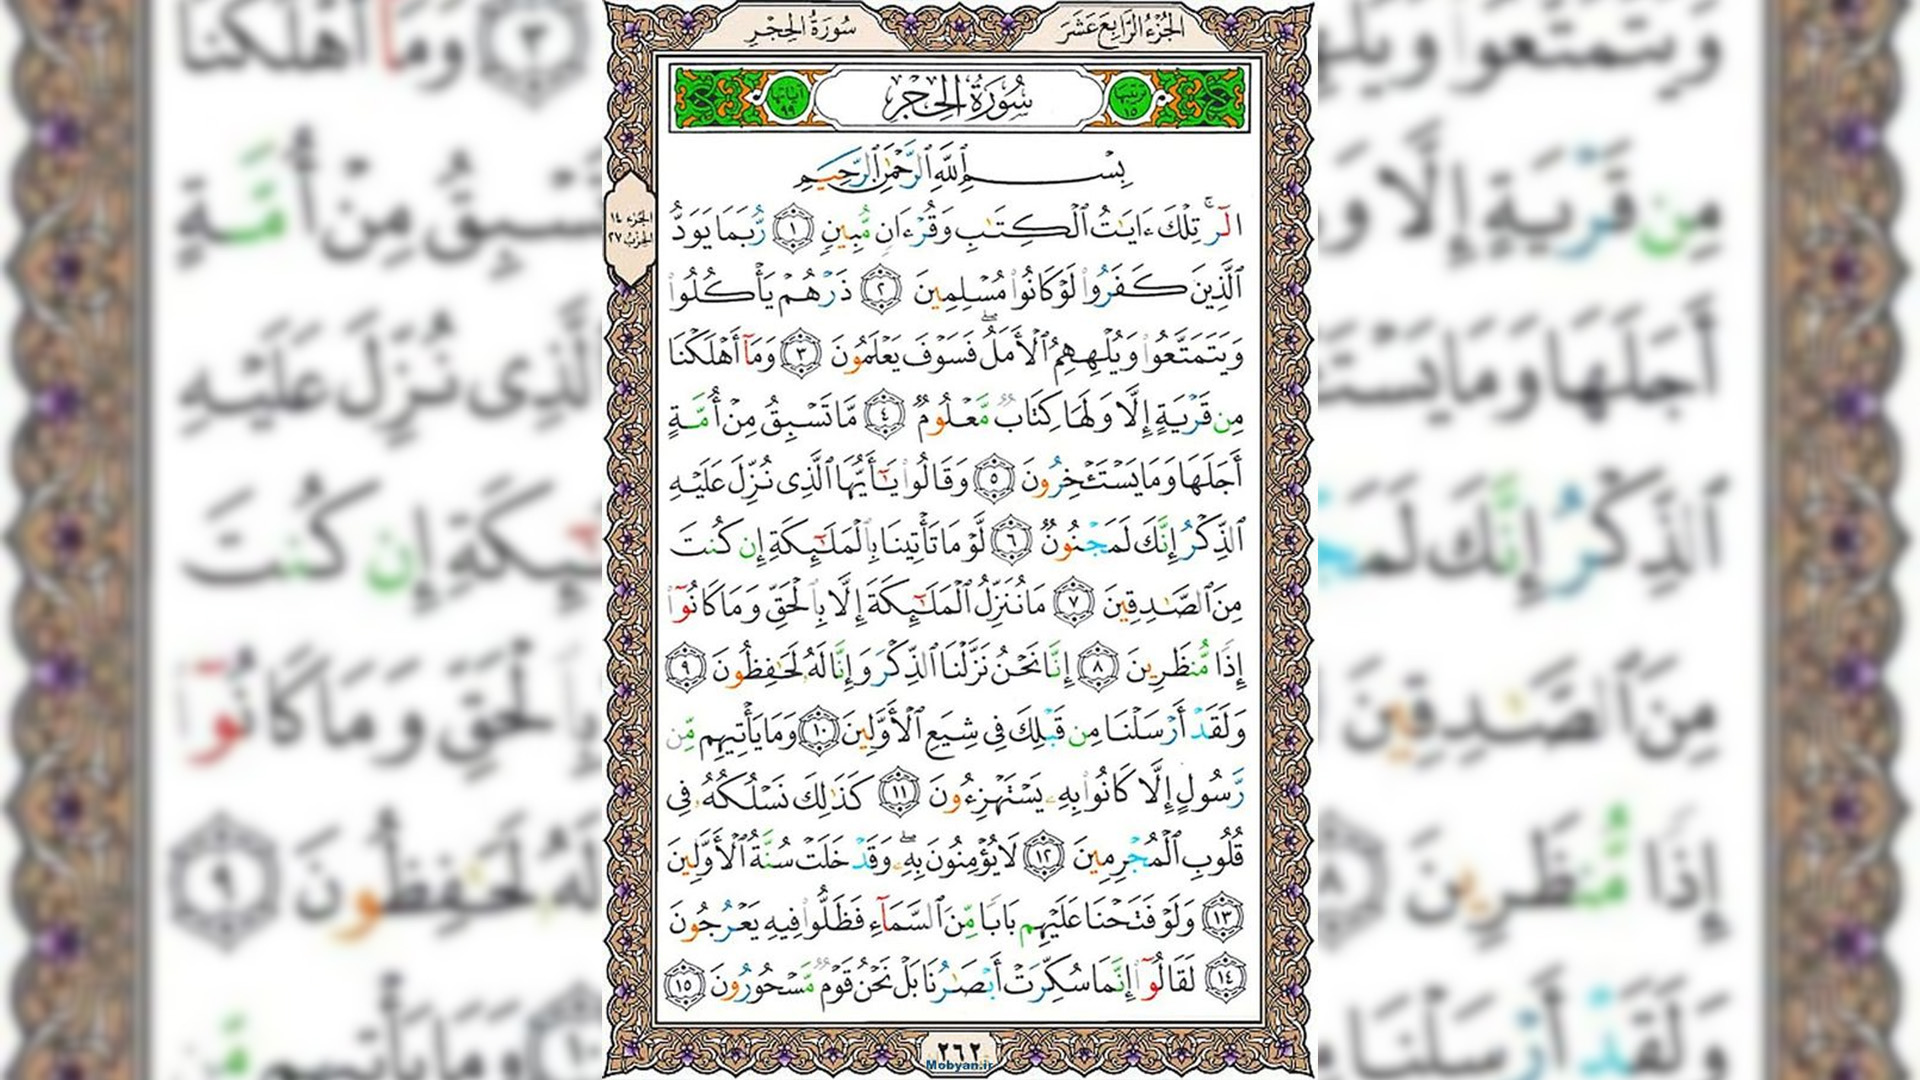 الجزء الرابع عشر
سورة الحجر
ترتيبها ١٥
سُورَةُ الحِجْرِ
آياتها ٩٩
الجزء ١٤
الحزب ٢٧
بِسْمِ ٱللَّهِ ٱلرَّحْمَٰنِ ٱلرَّحِيمِ
الٓر ۚ تِلْكَ ءَايَٰتُ ٱلْكِتَٰبِ وَقُرْءَانٍ مُّبِينٍ ١ رُّبَمَا يَوَدُّ
ٱلَّذِينَ كَفَرُوا۟ لَوْ كَانُوا۟ مُسْلِمِينَ ٢ ذَرْهُمْ يَأْكُلُوا۟
وَيَتَمَتَّعُوا۟ وَيُلْهِهِمُ ٱلْأَمَلُ ۖ فَسَوْفَ يَعْلَمُونَ ٣ وَمَآ أَهْلَكْنَا
مِن قَرْيَةٍ إِلَّا وَلَهَا كِتَابٌ مَّعْلُومٌ ٤ مَّا تَسْبِقُ مِنْ أُمَّةٍ
أَجَلَهَا وَمَا يَسْتَـْٔخِرُونَ ٥ وَقَالُوا۟ يَٰٓأَيُّهَا ٱلَّذِى نُزِّلَ عَلَيْهِ
ٱلذِّكْرُ إِنَّكَ لَمَجْنُونٌ ٦ لَّوْ مَا تَأْتِينَا بِٱلْمَلَٰٓئِكَةِ إِن كُنتَ
مِنَ ٱلصَّٰدِقِينَ ٧ مَا نُنَزِّلُ ٱلْمَلَٰٓئِكَةَ إِلَّا بِٱلْحَقِّ وَمَا كَانُوٓا۟
إِذًا مُّنظَرِينَ ٨ إِنَّا نَحْنُ نَزَّلْنَا ٱلذِّكْرَ وَإِنَّا لَهُۥ لَحَٰفِظُونَ ٩
وَلَقَدْ أَرْسَلْنَا مِن قَبْلِكَ فِى شِيَعِ ٱلْأَوَّلِينَ ١٠ وَمَا يَأْتِيهِم مِّن
رَّسُولٍ إِلَّا كَانُوا۟ بِهِۦ يَسْتَهْزِءُونَ ١١ كَذَٰلِكَ نَسْلُكُهُۥ فِى
قُلُوبِ ٱلْمُجْرِمِينَ ١٢ لَا يُؤْمِنُونَ بِهِۦ ۖ وَقَدْ خَلَتْ سُنَّةُ ٱلْأَوَّلِينَ
١٣ وَلَوْ فَتَحْنَا عَلَيْهِم بَابًا مِّنَ ٱلسَّمَآءِ فَظَلُّوا۟ فِيهِ يَعْرُجُونَ
١٤ لَقَالُوٓا۟ إِنَّمَا سُكِّرَتْ أَبْصَٰرُنَا بَلْ نَحْنُ قَوْمٌ مَّسْحُورُونَ ١٥
٢٦٢
Mobyan.ir